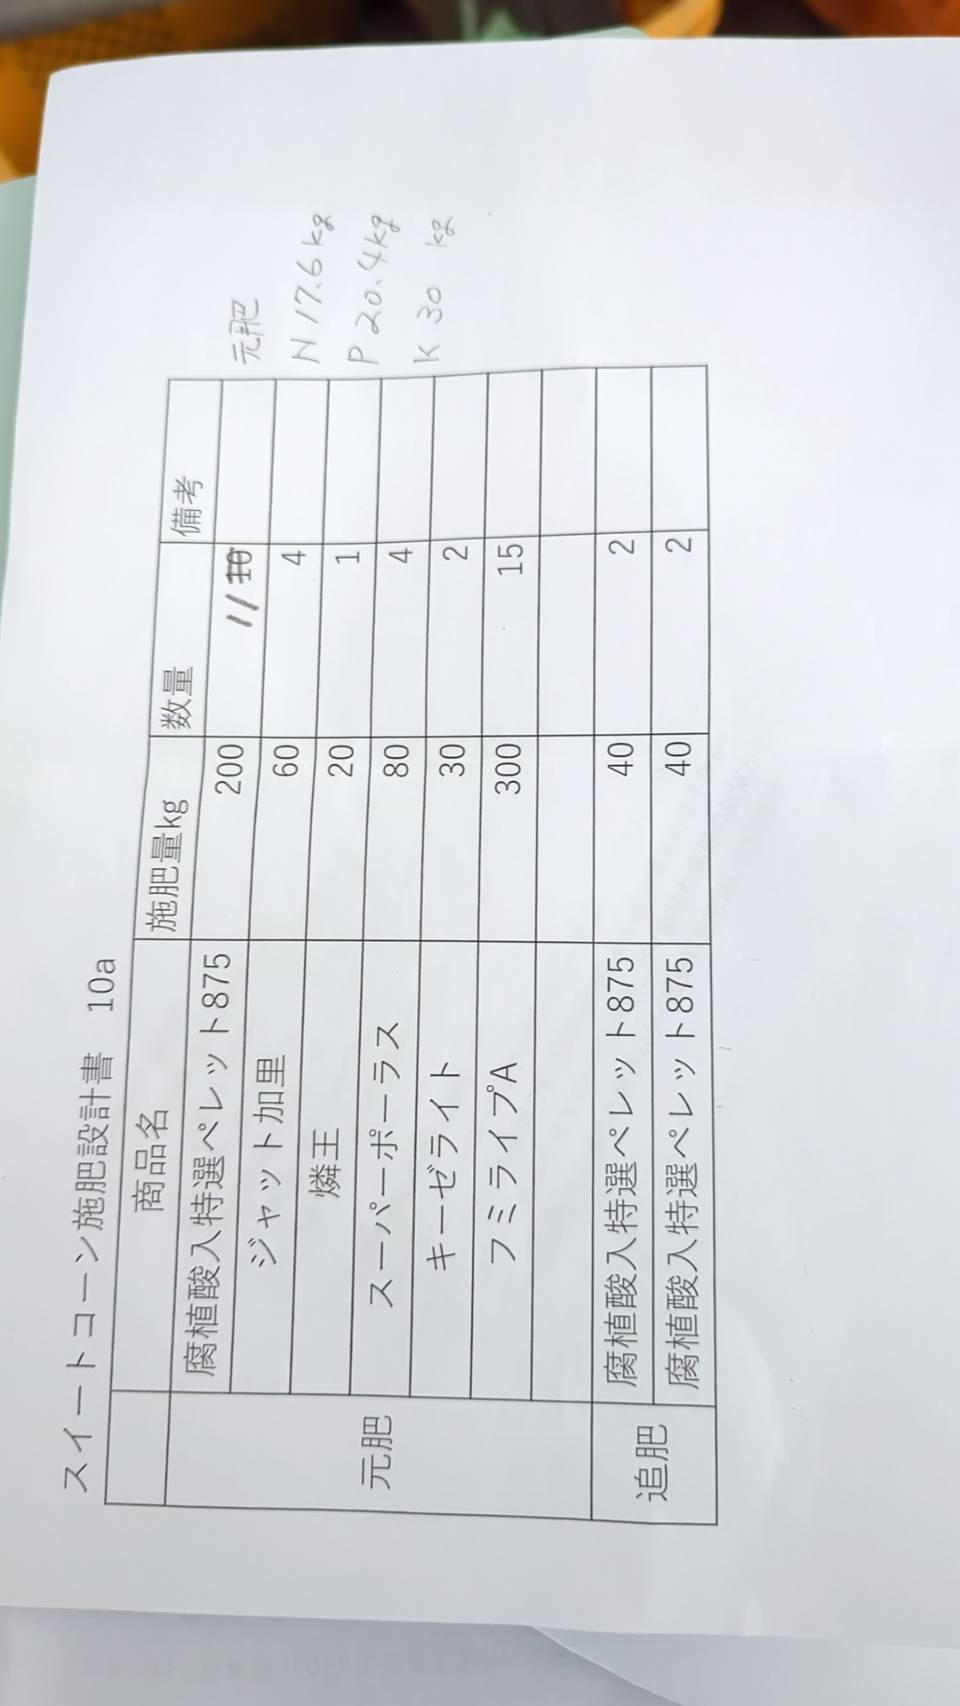 スイートコーン施肥設計書 10a
商品名 施肥量kg 数量 備考
元肥
腐植酸入特選ペレット875 200 11 10
ジャット加里 60 4
燐王 20 1
スーパーポーラス 80 4
キーゼライト 30 2
フミライプA 300 15
追肥
腐植酸入特選ペレット875 40 2
腐植酸入特選ペレット875 40 2
元肥
N 17.6kg
P 20.4kg
K 30 kg